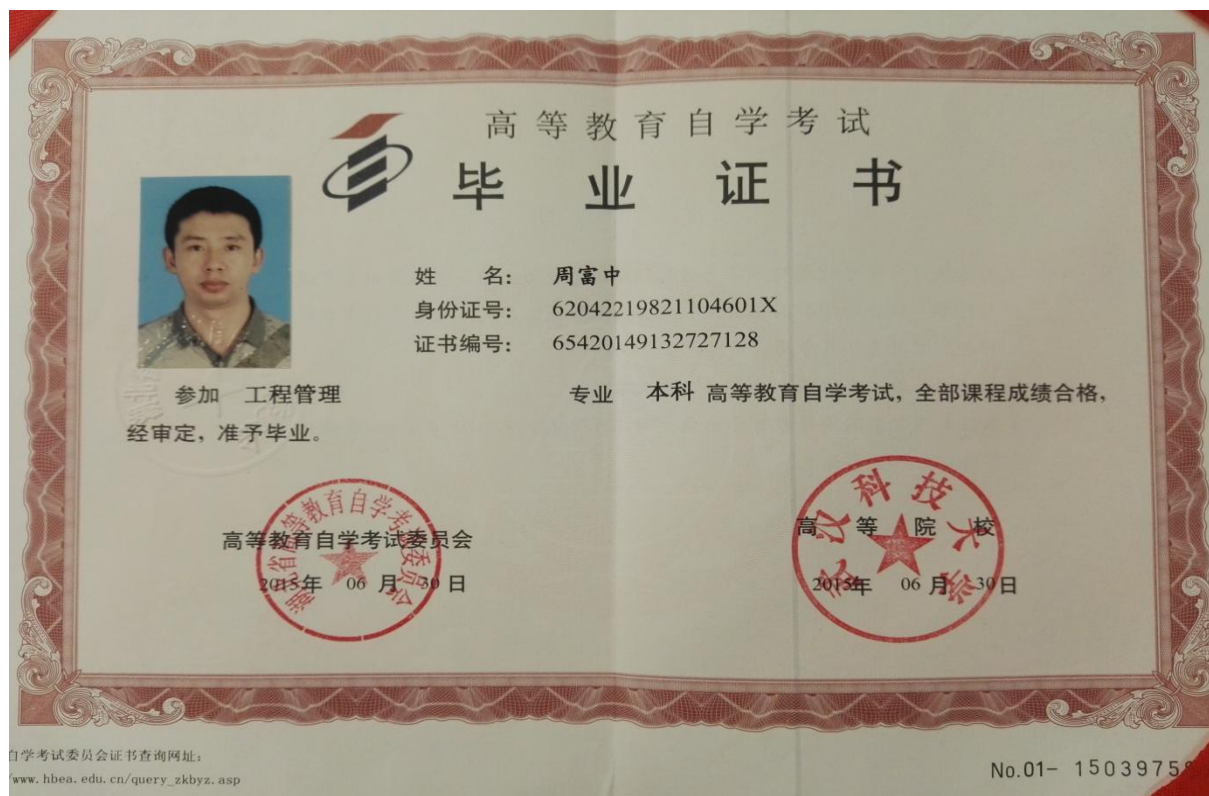 高等教育自学考试
毕业证书
姓 名： 周富中
身份证号： 62042219821104601X
证书编号： 65420149132727128
参加 工程管理 专业 本科 高等教育自学考试，全部课程成绩合格，
经审定，准予毕业。
湖北省高等教育自学考试委员会
高等教育自学考试委员会
2015年 06 月 30 日
武汉科技大学
高等院校
2015年 06 月 30 日
自学考试委员会证书查询网址：
www.hbea.edu.cn/query_zkbyz.asp
No.01- 1503975